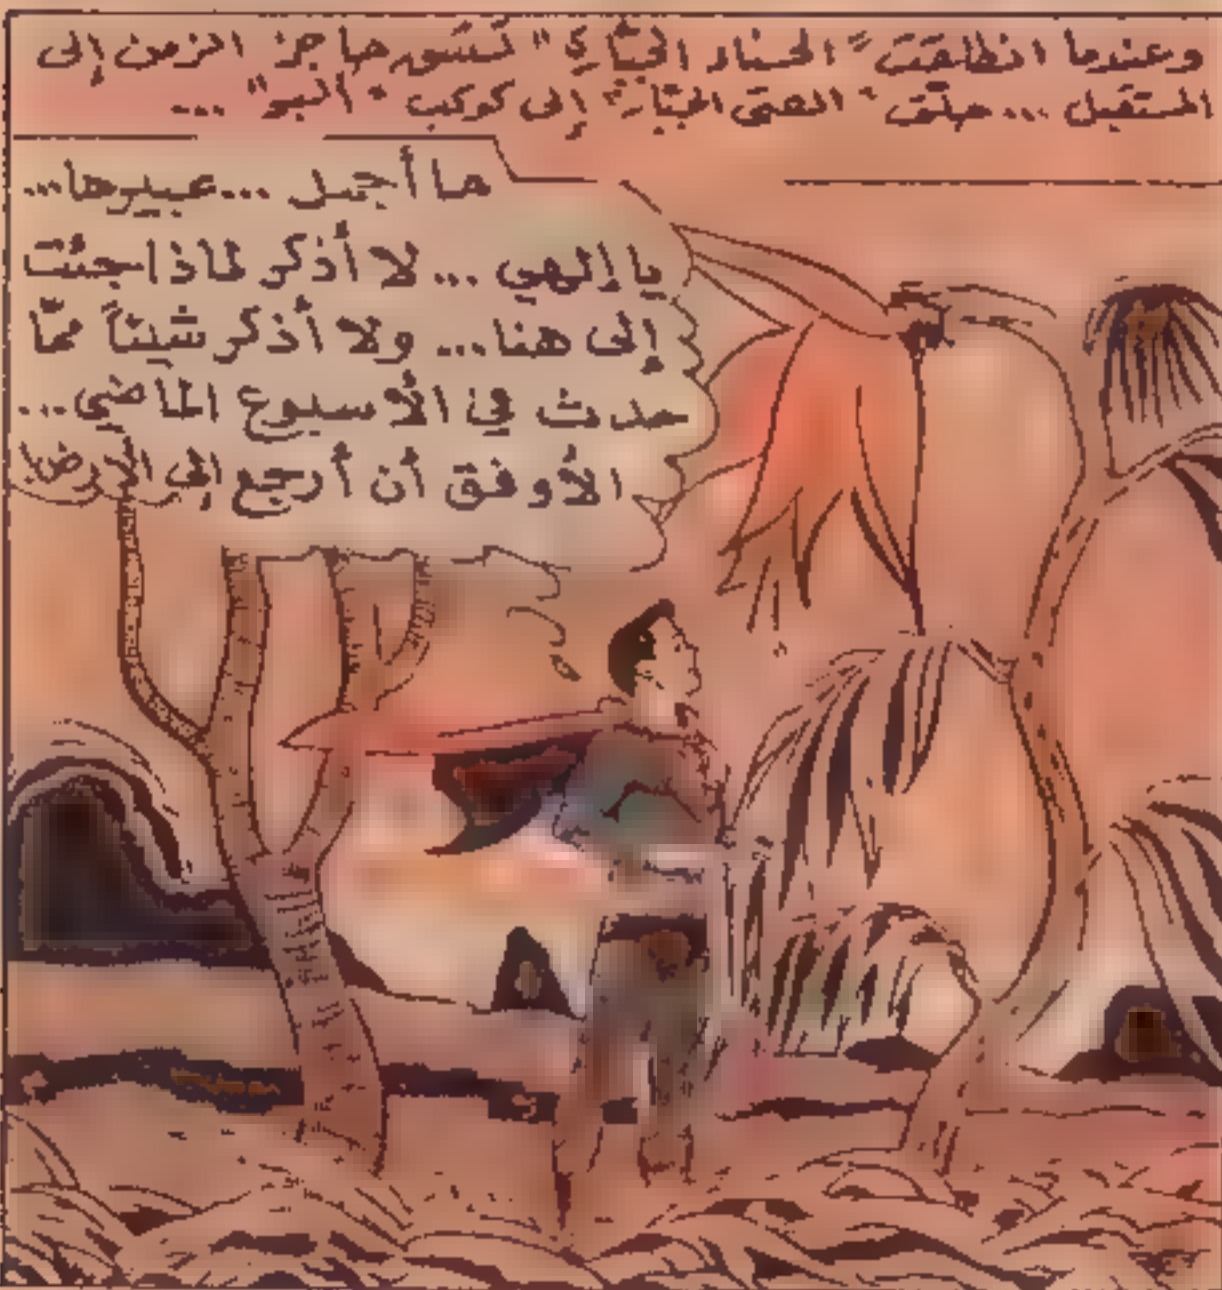 وعندما انطلقت "الحسناء الجبّارة" تشق حاجز الزمن إلى
المستقبل ... حلّق "الفتى الجبّار" إلى كوكب "البو" ...
ما أجمل ... عبيرها...
يا إلهي ... لا أذكر لماذا جئت
إلى هنا... ولا أذكر شيئاً ممّا
حدث في الأسبوع الماضي...
الأوفق أن أرجع إلى الأرض!